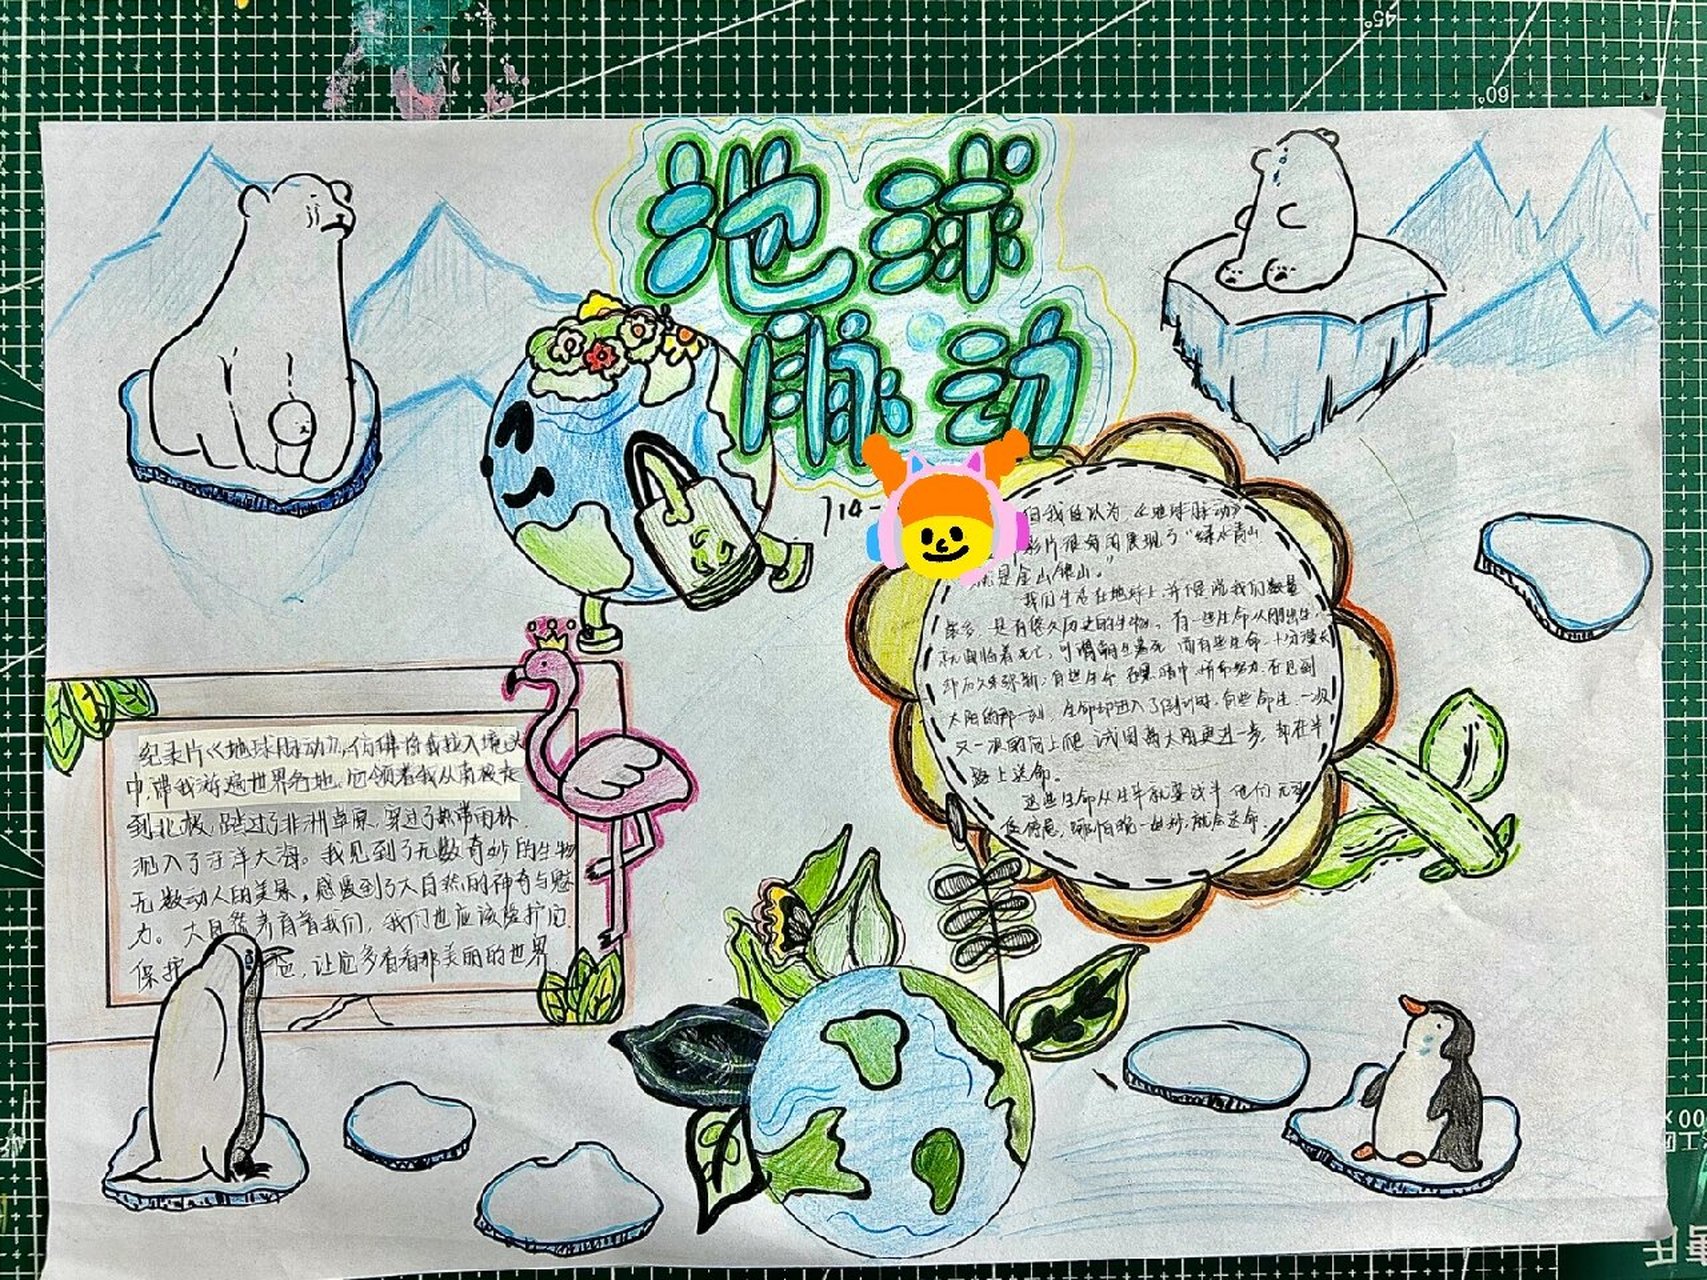 地球
脉动
714-
纪录片《地球脉动》,仿佛将我拉入境头
中,带我游遍世界各地。它领着我从南极走
到北极,踏过了非洲草原,穿过了热带雨林
泥入了汪洋大海。我见到了无数奇妙的生物
无数动人的美景。感受到了大自然的神奇与魅
力。大自然养育着我们,我们也应该保护它
保护 ,让它多看看那美丽的世界
但我自认为,《地球脉动》
影片很好的展现了“绿水青山
就是金山银山。”
我们生活在地球上,并不是说我们数量
最多,是有悠久历史的生物。有一些生命从刚出生,
就面临着死亡,可谓朝生暮死 而有些生命十分漫长
却历久弥新;有些生命 在黑暗中 努力 在见到
太阳的那一刻,生命却进入了倒计时,有些命运一次
又一次的向上爬,试图离太阳更进一步,却在半
路上送命。
这些生命从生来就要战斗 他们无法
停息,哪怕晚一些秒,就会送命。
45°
60°